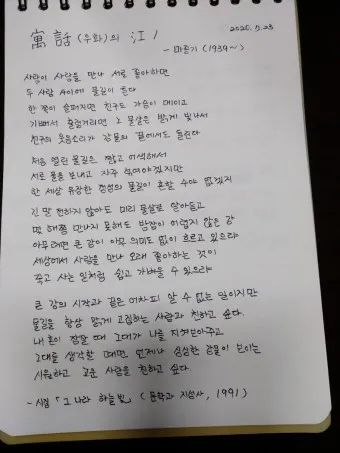 寓話(우화)의 江 1
2020. 9. 23
- 마종기 (1939~)
사람이 사람을 만나 서로 좋아하면
두 사람 사이에 물길이 튼다
한 쪽이 슬퍼지면 친구도 가슴이 메이고
기뻐서 출렁거리면 그 물살은 밝게 빛나서
친구의 웃음소리가 강물의 끝에서도 들린다
처음 열린 물길은 짧고 어색해서
서로 물을 보내고 자주 섞여야겠지만
한 세상 유장한 정성의 물길이 흔할 수야 없겠지
긴 말 전하지 않아도 미리 물살로 알아듣고
몇 해쯤 만나지 못해도 밤잠이 어렵지 않은 강
아무려면 큰 강이 아무 의미도 없이 흐르고 있으랴
세상에서 사람을 만나 오래 좋아하는 것이
죽고 사는 일처럼 쉽고 가벼울 수 있으랴
큰 강의 시작과 끝은 어차피 알 수 없는 일이지만
물길을 항상 맑게 고집하는 사람과 친하고 싶다.
내 혼이 잠잘 때 그대가 나를 지켜보아주고
그대를 생각할 때면 언제나 싱싱한 강물이 보이는
시원하고 고운 사람을 친하고 싶다.
- 시집 「그 나라 하늘빛」 (문학과 지성사, 1991)